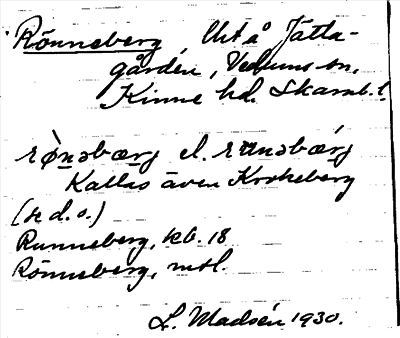 Rönneberg, Utå Jätta-
gården, Vedums sn.
Kinne hd. Skarab. l.
rø̀nəbærg el. rønəbǽrg
Kallas även Krokeberg
(se d. o.)
Runneberg, kb. 18
Rönneberg, mtl.
L. Madsén 1930.